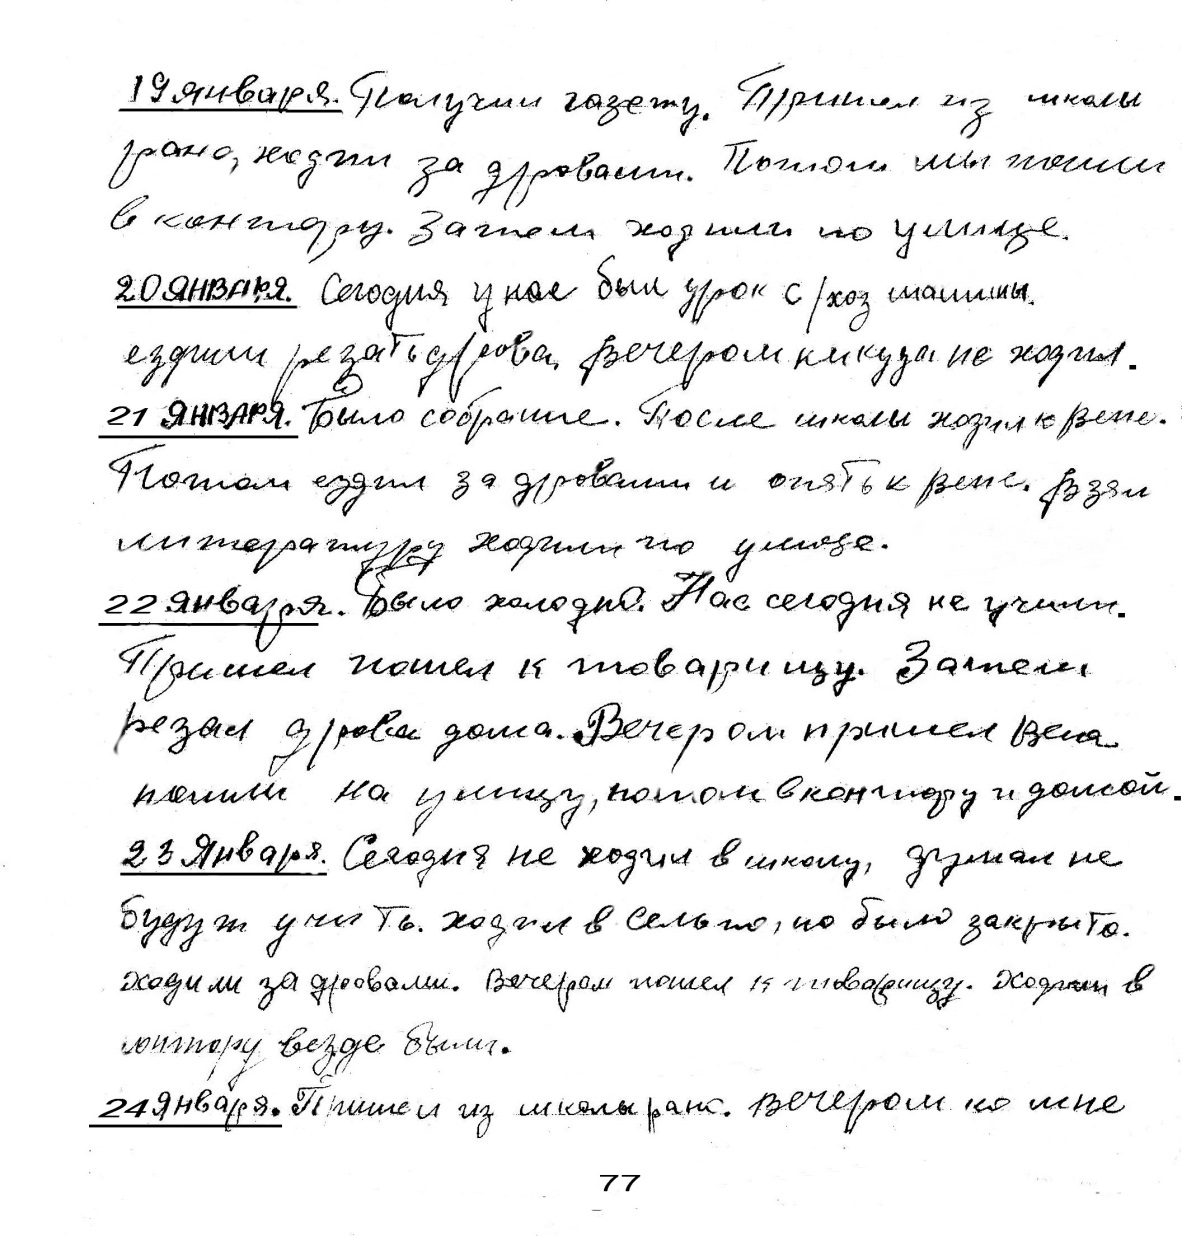 19 января. Получил газету. Пришел из школы
рано, ходил за дровами. Потом мы пошли
в контору. Затем ходили по улице.
20 января. Сегодня у нас был урок с/хоз машины.
ездили резать дрова, вечером никуда не ходил.
21 января. Было собрание. После школы ходил к Вене.
Потом ездил за дровами и опять к Вене. Взял
литературу ходили по улице.
22 января. Было холодно. Нас сегодня не учили.
Пришел пошел к товарищу. Затем
резал дрова дома. Вечером пришел Вена
пошли на улицу, потом в контору и домой.
23 Января. Сегодня не ходил в школу, думал не
будут учить. ходил в Сельпо, но было закрыто.
ходили за дровами. Вечером пошел к товарищу. Ходили в
контору везде были.
24 января. Пришел из школы рано. Вечером ко мне
77